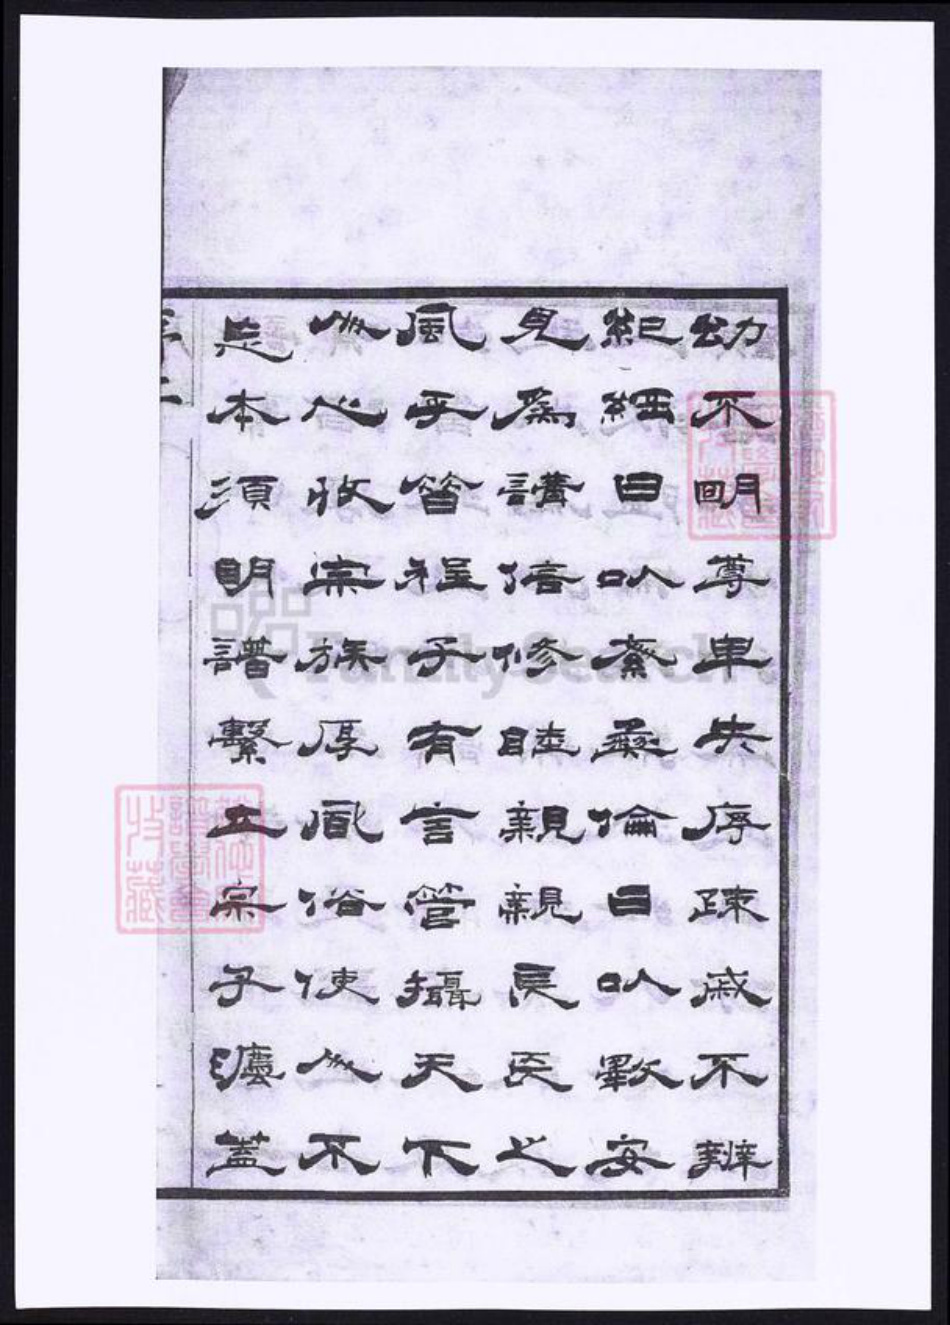 幼不明尊卑失序疎戚不辨
紀綱日以紊彝倫日以斁安
見爲講信修睦親親長長之
風乎昔程子有言管攝天下
人心收宗族厚風俗使人不
忘本須明譜繫立宗子灋蓋
FamilySearch